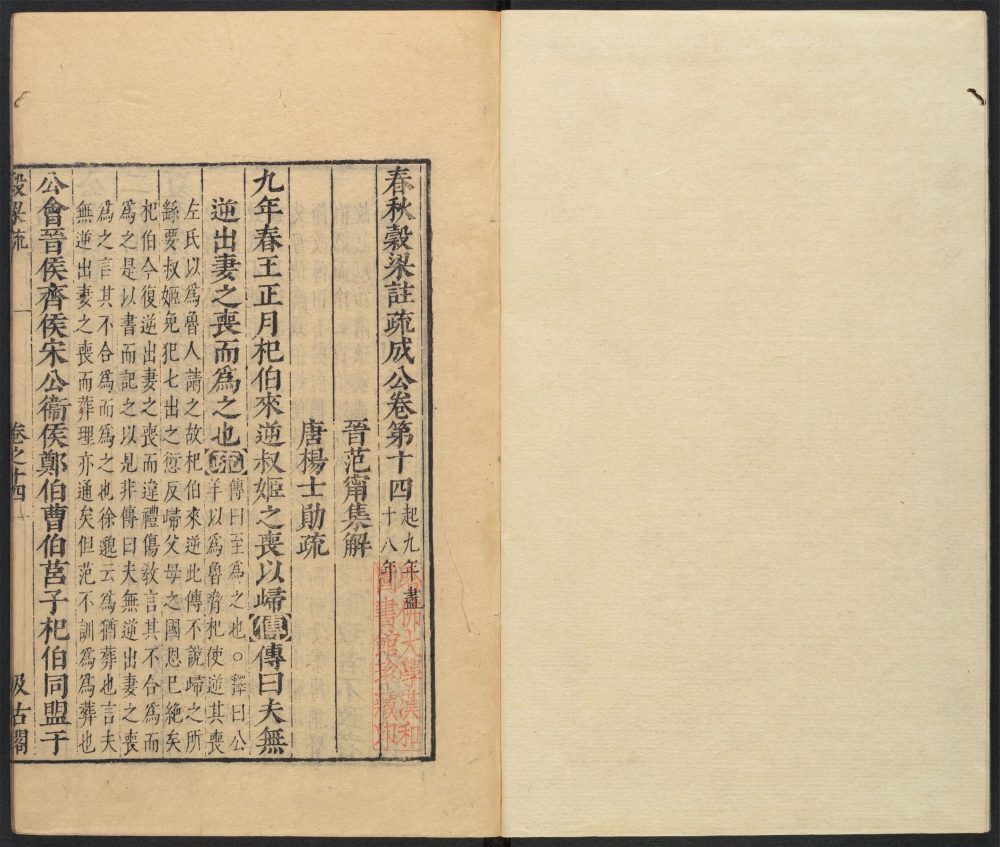 春秋穀梁註疏成公卷第十四
起九年盡
十八年
哈佛大學漢和
圖書館珍藏印
晉范甯集解
唐楊士勛疏
九年春王正月杞伯來逆叔姬之喪以歸傳傳曰夫無
逆出妻之喪而爲之也疏
傳曰至爲之也○釋曰公
羊以爲魯脅杞使逆其喪
左氏以爲魯人請之故杞伯來逆此傳不說歸之所
繇要叔姬免犯七出之愆反歸父母之國恩已絕矣
杞伯今復逆出妻之喪而違禮傷敎言其不合爲而
爲之是以書而記之以見非傳曰夫無逆出妻之喪
爲之言其不合爲而爲之也徐邈云爲猶葬也言夫
無逆出妻之喪而葬理亦通矣但范不訓爲爲葬也
公會晉侯齊侯宋公衞侯鄭伯曹伯莒子杞伯同盟于
穀梁疏 卷之十四 一 汲古閣